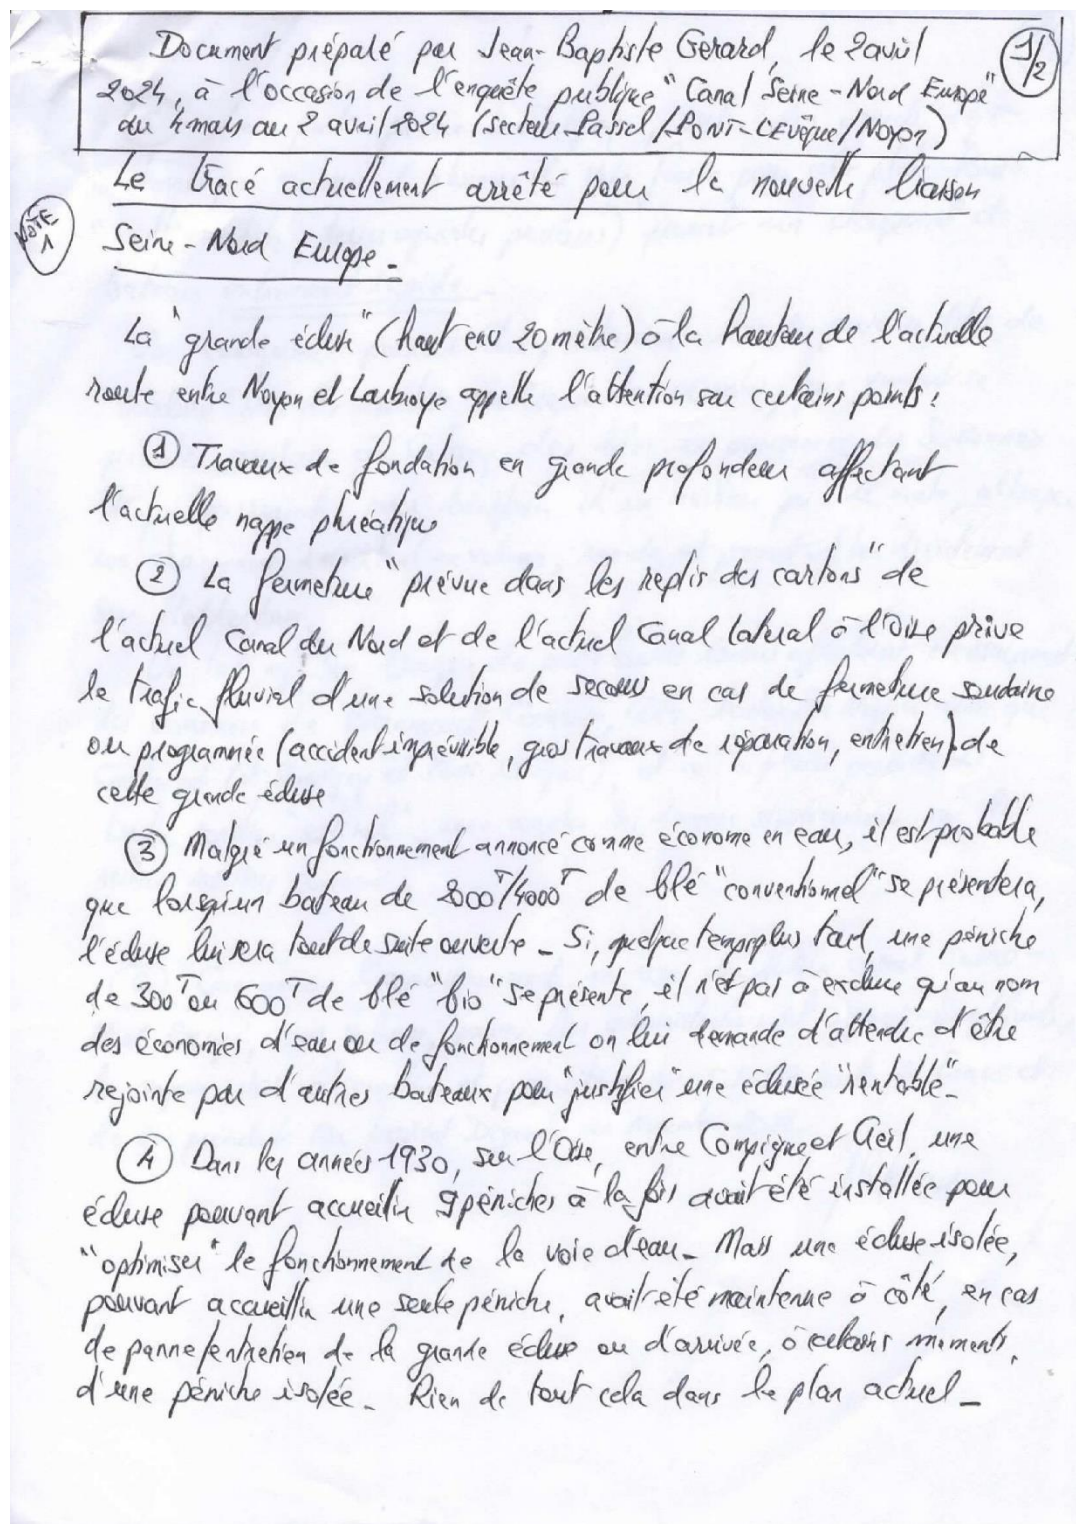 Document préparé par Jean-Baptiste Gerard, le 2 avril
1/2
2024, à l'occasion de l'enquête publique "Canal Seine-Nord Europe"
du 4 mars au 2 avril 2024 (secteur Passel/PONT-L'EVêque/Noyon)
Le tracé actuellement arrêté pour la nouvelle liaison
NOTE
1
Seine-Nord Europe-
La "grande écluse" (haut env 20 mètre) à la hauteur de l'actuelle
route entre Noyon et Larbroye appelle l'attention sur certains points:
① Travaux de fondation en grande profondeur affectant
l'actuelle nappe phréatique
② La fermeture "prévue dans les replis des cartons" de
l'actuel Canal du Nord et de l'actuel Canal latéral à l'Oise prive
le trafic fluvial d'une solution de secours en cas de fermeture soudaine
ou programmée (accident imprévisible, gros travaux de réparation, entretien) de
cette grande écluse
③ Malgré un fonctionnement annoncé comme économe en eau, il est probable
que lorsqu'un bateau de 2000T/4000T de blé "conventionnel" se présentera,
l'écluse lui sera tout de suite ouverte - Si, quelque temps plus tard, une péniche
de 300T ou 600T de blé "bio" se présente, il n'est pas à exclure qu'au nom
des économies d'eau ou de fonctionnement on lui demande d'attendre d'être
rejointe par d'autres bateaux pour "justifier" une éclusée "rentable"-
④ Dans les années 1930, sur l'Oise, entre Compiègne et Creil, une
écluse pouvant accueillir 9 péniches à la fois avait été installée pour
"optimiser" le fonctionnement de la voie d'eau- Mais une écluse isolée,
pouvant accueillir une seule péniche, avait été maintenue à côté, en cas
de panne/entretien de la grande écluse ou d'arrivée, à certains moments,
d'une péniche isolée- Rien de tout cela dans le plan actuel-